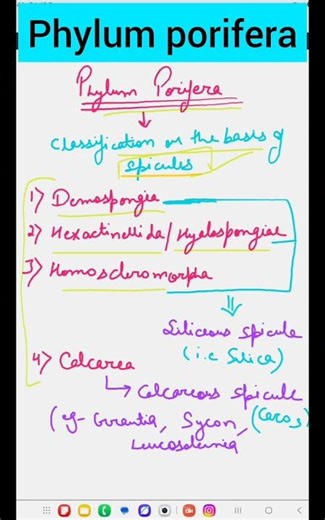 Phylum porifera
Phylum Porifera
Classification on the basis of
spicules
1) Demospongia
2) Hexactinellida/Hyalospongiae
3) Homoscleromorpha
Siliceous spicule
(i.e Silica)
4) Calcarea
Calcareous spicule
(CaCO3)
(eg- Grantia, Sycon,
Leucosolenia